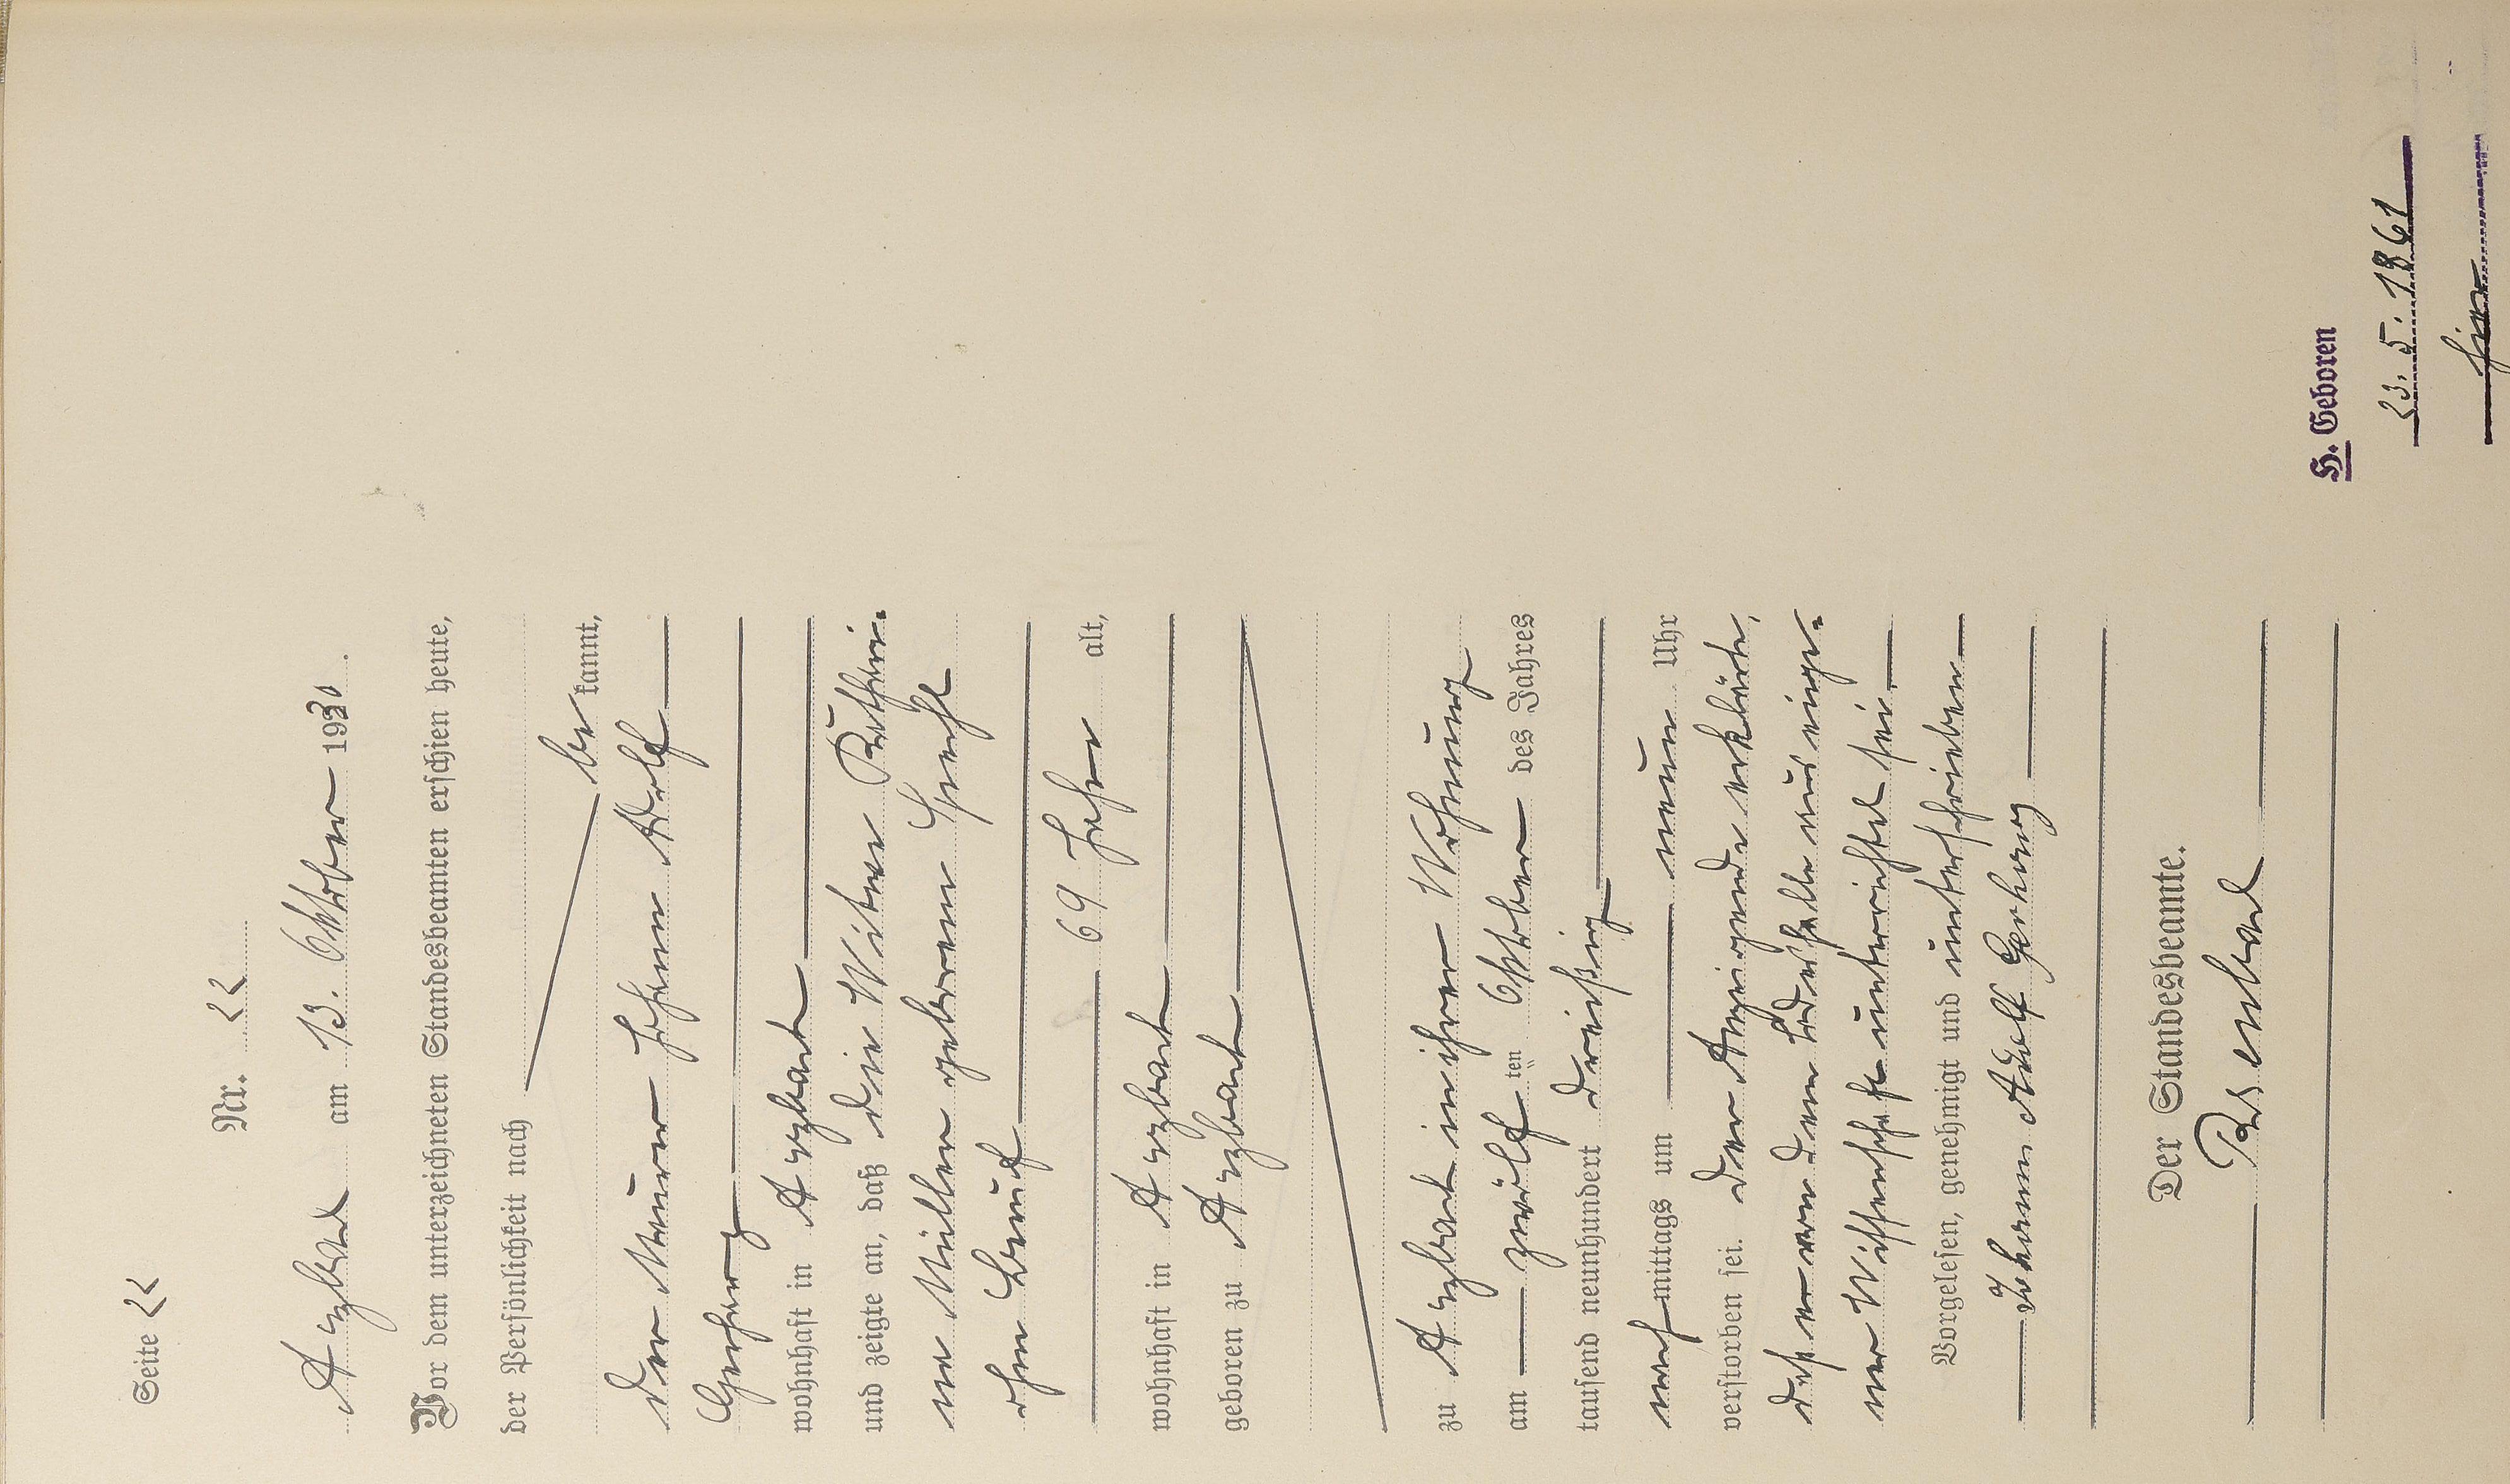 Seite 22
Nr. 22
Arzbach am 13. Oktober 1930.
Vor dem unterzeichneten Standesbeamten erschien heute,
der Persönlichkeit nach
be kannt,
der Maurer Johann Adolf
Gerharz
wohnhaft in Arzbach
und zeigte an, daß die Witwe Kathari-
na Müller geborene Specht
ohne Beruf
69 Jahre alt,
wohnhaft in Arzbach
geboren zu Arzbach
zu Arzbach in ihrer Wohnung
am zwölf ten Oktober des Jahres
tausend neunhundert dreißig
nachmittags um neun Uhr
verstorben sei. Der Anzeigende erklärte,
daß er von dem Todesfalle aus eige-
ner Wissenschaft unterrichtet sei.
Vorgelesen, genehmigt und unterschrieben
Johann Adolf Gerharz
Der Standesbeamte.
H. Geboren
23. 5. 1861
hier